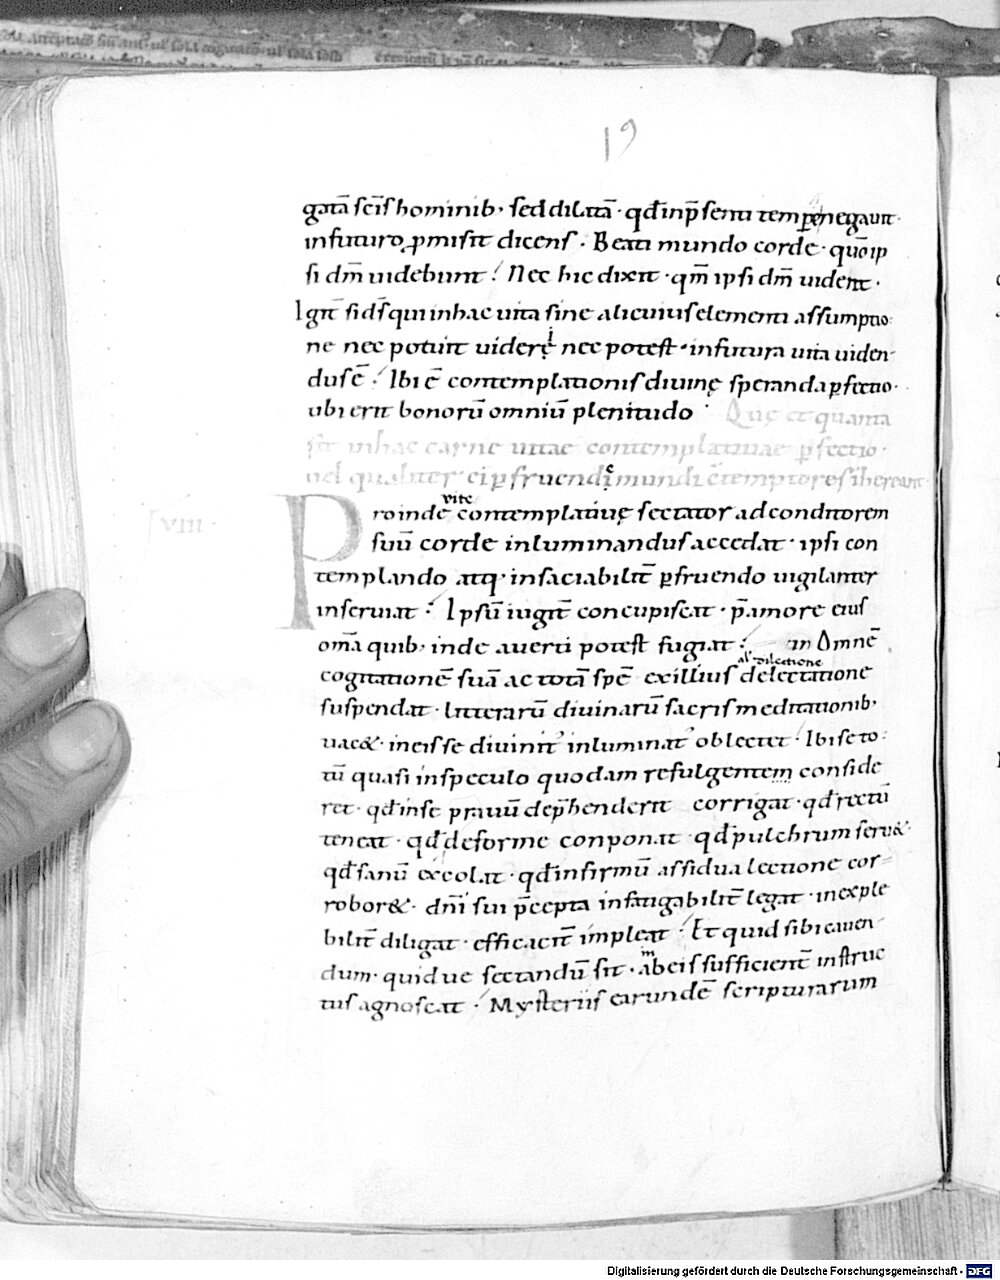 19
gatā scīs hominib· sed dilatā· qđ in p̄senti tempore negauit·
in futuro ꝓmisit dicens· Beati mundo corde· qūo ip
si dm̄ uidebunt! Nec hic dixit· qm̄ ipsi dm̄ uident·
Igit̄ si d̄s qui in hac uita sine alicuius elementi assumptio
ne nec potuit uideri nec potest· in futura uita uiden
dus ē! Ibi ē contemplationis diuinę speranda ꝑfectio·
ubi erit bonorū omniū plenitudo· Quę et quanta
sit in hac carne uitae contemplatiuae ꝑfectio·
uel qualiter ei ꝑfruendę mundi c̄temptores iħereant·
VIII·
vite
Proinde contemplatiuę sectator ad conditorem
suū corde inluminandus accedat· ipsi con
templando atq· insaciabilit̄ ꝑfruendo uigilanter
inseruiat· Ipsū iugit̄ concupiscat· p̄ amore eius
om̄a quib· inde auerti potest fugiat! in Omnē
al' dilectione
cogitationē suā ac totā spē ex illius delectatione
suspendat· Litterarū diuinarū sacris meditationib·
uac&· in eis se diuinit' inluminat' oblectet· Ibi se to
tū quasi in speculo quodam refulgentem conside
ret· qđ in se prauū dep̄henderit corrigat· qđ rectū
teneat· qđ deforme conponat· qđ pulchrum seru&·
qđ sanū excolat· qđ infirmū assidua lectione cor
robor&· dn̄i sui p̄cepta infatigabilit̄ legat· inexple
bilit̄ diligat· efficacit̄ impleat· Et quid sibi cauen
dum· quid ue sectandū sit· ab eis sufficient̄ instruc
tus agnoscat· Mysteriis earundē scripturarum
Digitalisierung gefördert durch die Deutsche Forschungsgemeinschaft - DFG